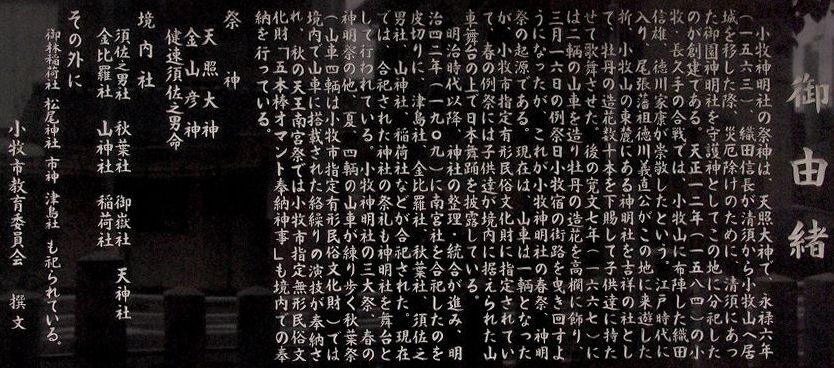 御由緒
小牧神明社の祭神は、天照大神で、永禄六年
(一五六三)、織田信長が清須から小牧山へ居
城を移した際、災厄除けのために、清須にあっ
た御園神明社を守護神としてこの地に分祀した
のが創建である。天正一二年(一五八四)の小
牧・長久手の合戦では、小牧山に布陣した織田
信雄、徳川家康が崇敬したという。江戸時代に
入り、尾張藩祖徳川義直公がこの地に来遊した
折、小牧山の東麓にある神明社を吉祥の社とし
て、牡丹の造花数十本を下賜して子供達に持た
せて歌舞させた。後の寛文七年(一六六七)に
は二輌の山車を造り牡丹の造花を高欄に飾り、
三月一六日の例祭日小牧宿の街路を曳き回すよ
うになったが、これが小牧神明社の春祭、神明
祭の起源である。現在は、山車は一輌となった
が、小牧市指定有形民俗文化財に指定されてい
て、春の例祭には子供達が境内に据えられた山
車舞台の上で日本舞踊を披露している。
明治時代以降、神社の整理・統合が進み、明
治四二年(一九〇九)に南宮社を合祀したのを
皮切りに、津島社、金比羅社、秋葉社、須佐之
男社、山神社、稲荷社などが合祀された。現在
では、合祀された神社の祭礼も神明社を舞台と
して行われている。小牧神明社の三大祭、春の
神明祭の他、夏、四輌の山車が練り歩く秋葉祭
(山車四輌は小牧市指定有形民俗文化財)では
境内で山車に搭載された絡繰りの演技が奉納さ
れ、秋の天王南宮祭では小牧市指定無形民俗文
化財「五本棒オマント奉納神事」も境内での奉
納を行っている。
祭神
天照大神
金山彦神
健速須佐之男命
境内社
須佐之男社 秋葉社 御嶽社 天神社
金比羅社 山神社 稲荷社
その外に
御林稲荷社 松尾神社 市神 津島社 も祀られている。
小牧市教育委員会 撰文